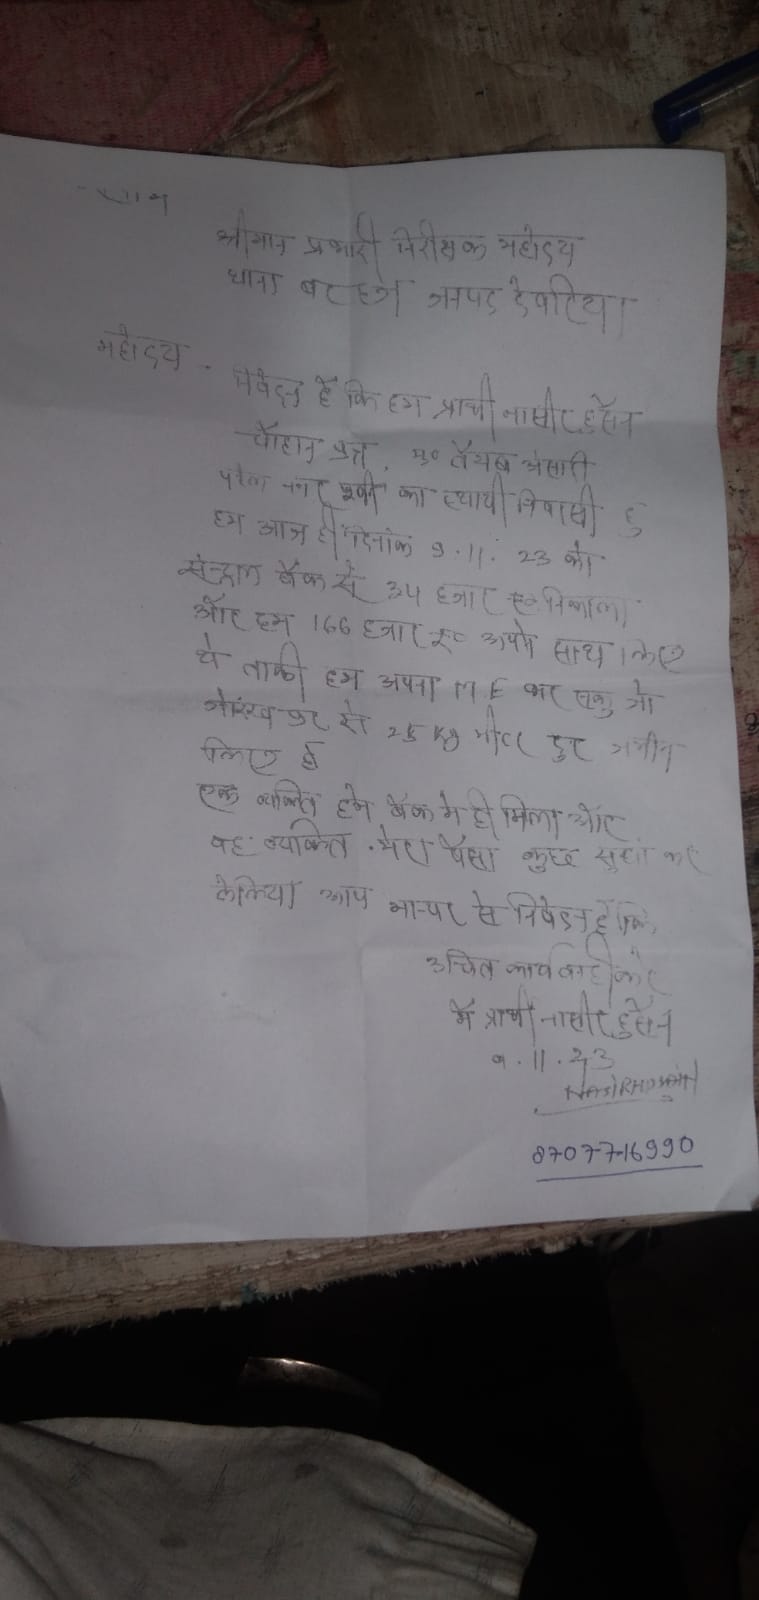 श्रीमान प्रभारी निरीक्षक महोदय
थाना बरहज जनपद देवरिया
महोदय -
निवेदन है कि हम प्रार्थी नासीर हुसैन
चौहान पुत्र . मु० तैयब अंसारी
पटेल नगर का स्थायी निवासी हु
हम आज ही दिनांक 9.11.23 को
सेन्ट्रल बैंक से 34 हजार रु० निकाला
और हम 166 हजार रु० अपने साथ लिए
थे ताकी हम अपना कर सकु जो
से 25 Kg मीटर दुर जमीन
लिए हु
एक व्यक्ति हमे बैंक मे ही मिला और
वह व्यक्ति . मेरा पैसा कुछ सुंघा कर
लेलिया आप से निवेदन है कि
उचित कार्यवाही करे
मै प्रार्थी नासीर हुसैन
9.11.23
8707716990